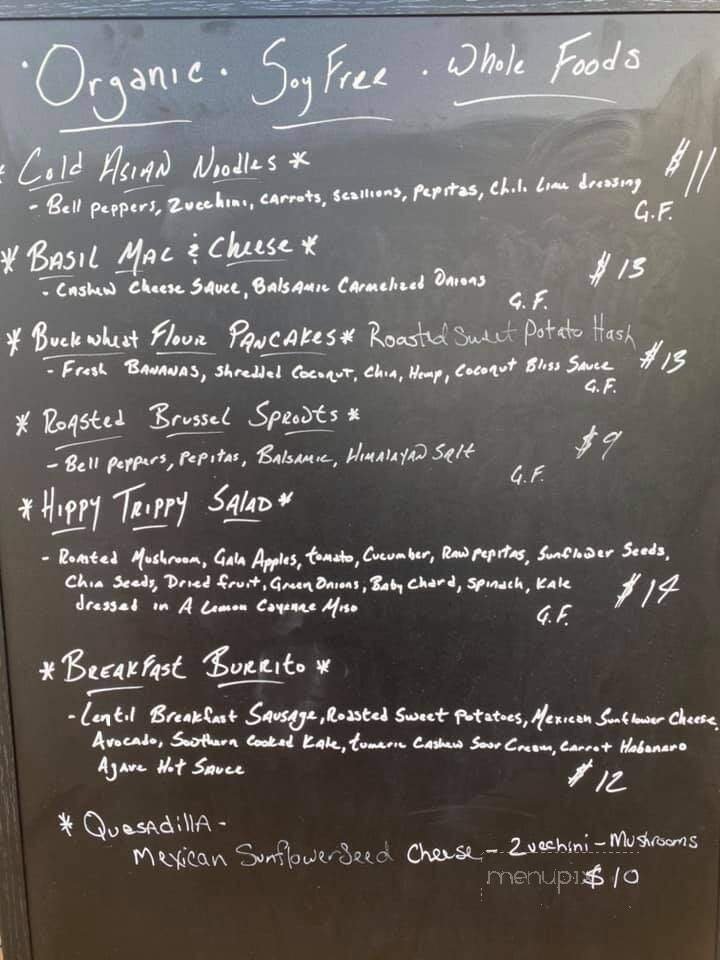 ·Organic · Soy Free · Whole Foods
* Cold Asian Noodles * $11
- Bell peppers, Zucchini, carrots, scallions, pepitas, Chili Lime dressing
G.F.
* Basil Mac & Cheese * $13
- Cashew Cheese Sauce, Balsamic Carmelized Onions
G.F.
* Buckwheat Flour Pancakes * Roasted Sweet Potato Hash
- Fresh Bananas, shredded Coconut, Chia, Hemp, Coconut Bliss Sauce $13
G.F.
* Roasted Brussel Sprouts *
- Bell peppers, pepitas, Balsamic, Himalayan Salt $9
G.F.
* Hippy Trippy Salad *
- Roasted Mushroom, Gala Apples, tomato, Cucumber, Raw pepitas, Sunflower Seeds,
Chia Seeds, Dried fruit, Green Onions, Baby Chard, Spinach, Kale
dressed in A Lemon Cayenne Miso $14
G.F.
* Breakfast Burrito *
- Lentil Breakfast Sausage, Roasted Sweet Potatoes, Mexican Sunflower Cheese,
Avocado, Southern Cooked Kale, tumeric Cashew Sour Cream, Carrot Habanero
Agave Hot Sauce $12
* Quesadilla -
Mexican SunflowerSeed Cheese - Zucchini - Mushrooms
$10